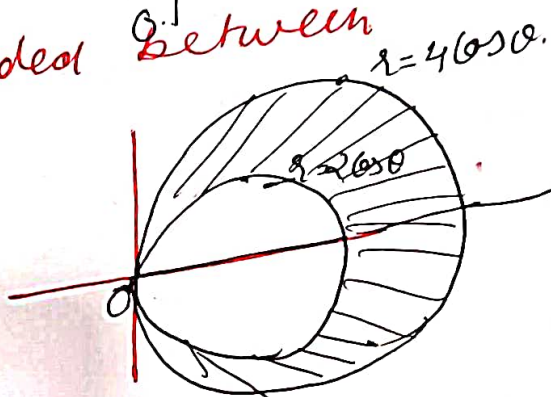 ded between
r=4cosθ.
r=2cosθ
O